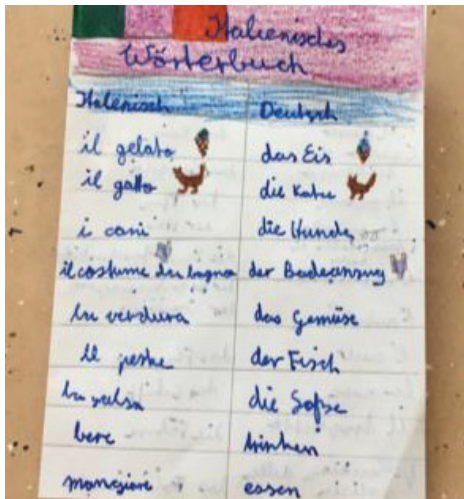 Italienisches
Wörterbuch
Italenisch Deutsch
il gelato das Eis
il gatto die Katze
i cani die Hunde
il costume da bagno der Badeanzug
la verdura das Gemüse
il peske der Fisch
la salsa die Soße
bere trinken
mangiare essen